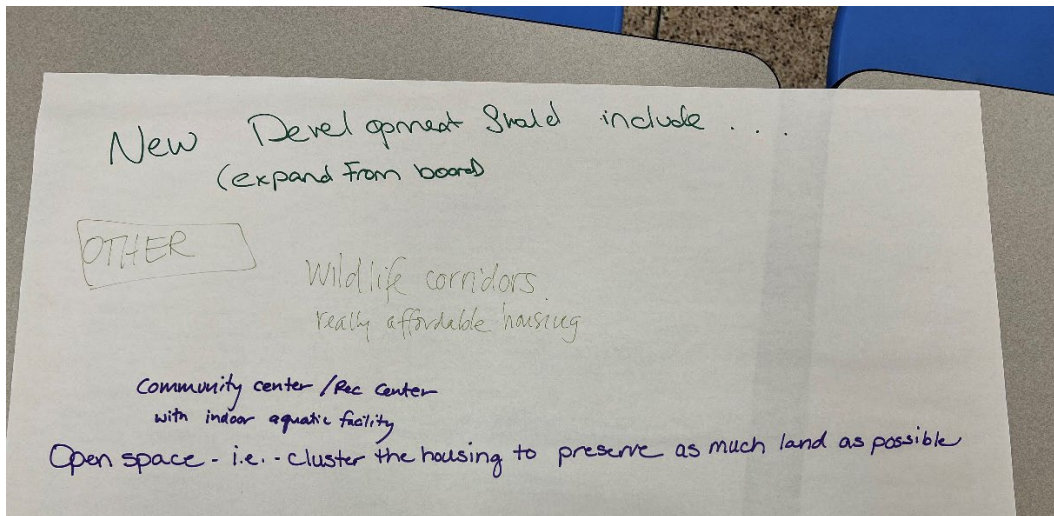 New Development Should include . . .
(expand From board)
OTHER
Wildlife corridors
really affordable housing
Community center / Rec Center
with indoor aquatic facility
Open space - i.e. - cluster the housing to preserve as much land as possible